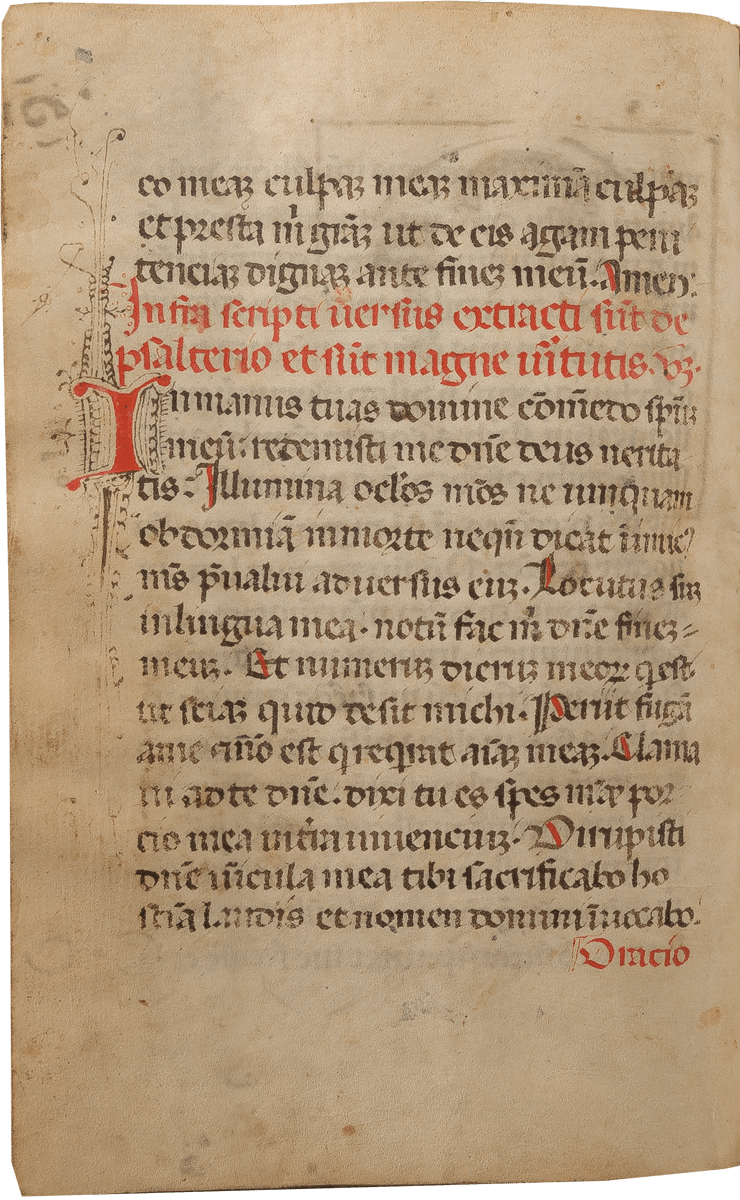 co meaꝫ culpaꝫ meaꝫ maximā culpaꝫ
et presta m̄ grāꝫ ut de eis agam peni
tenciaꝫ dignaꝫ ante fineꝫ meū. Amen:
Infra scripti uersus extracti sūt de
psalterio et sūt magne uꝰtutis. vꝫ.
In manus tuas domine cōmēdo spm̄
meū: redemisti me dn̄e deus uerita
tis: Illumina oclo̅s meo̅s ne unquam
obdormiā in morte nequn̄ dicat inimic
me̅s p̄ualui aduersus euꝫ. Locutus suꝫ
in lingua mea. notū fac m̄ dn̄e fineꝫ=
meuꝫ. Et numeruꝫ dieruꝫ meoꝝ q̄ est
ut sciaꝫ quid desit michi. Periit fuga
a me ⁊ nō est q requirat aīaꝫ meaꝫ. Clama
ui ad te dn̄e. dixi tu es spes mea por
cio mea in tr̄a uiuenciuꝫ. Dirupisti
dn̄e uīcula mea tibi sacrificabo ho
stiā laudis et nomen domini īuocabo.
Oracio